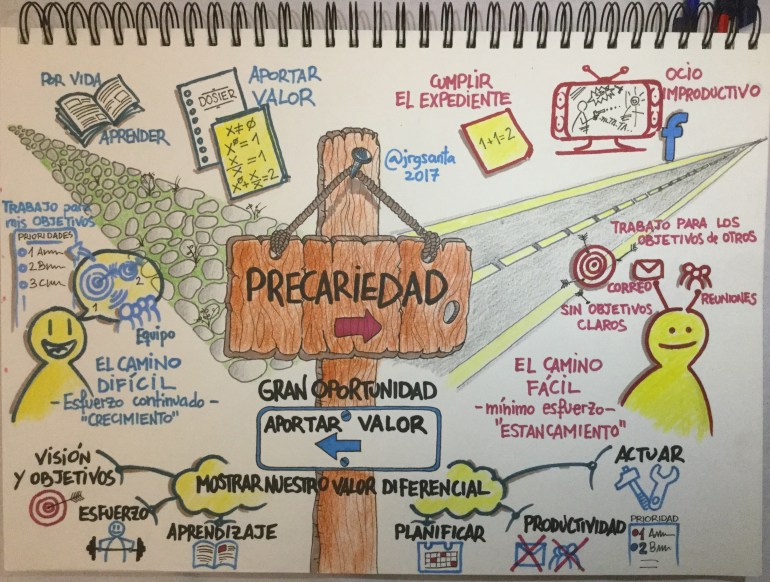 POR VIDA
APRENDER
DOSIER
X≠0
X⁰=1
X/X=1
X⁰+X/X=2
APORTAR
VALOR
CUMPLIR
EL EXPEDIENTE
1+1=2
OCIO
IMPRODUCTIVO
RATATA
f
@jrgsanta
2017
TRABAJO para
mis OBJETIVOS
PRIORIDADES
1 Am
2. Bm
3 Cm
1
2
Equipo
EL CAMINO
DIFÍCIL
- Esfuerzo continuado -
"CRECIMIENTO"
PRECARIEDAD
TRABAJO PARA LOS
OBJETIVOS de OTROS
SIN OBJETIVOS
CLAROS
CORREO
REUNIONES
EL CAMINO
FÁCIL
- mínimo esfuerzo -
"ESTANCAMIENTO"
GRAN OPORTUNIDAD
APORTAR VALOR
MOSTRAR NUESTRO VALOR DIFERENCIAL
VISIÓN
Y OBJETIVOS
ESFUERZO
APRENDIZAJE
PLANIFICAR
PRODUCTIVIDAD
ACTUAR
PRIORIDAD
1 Am
2 Bm